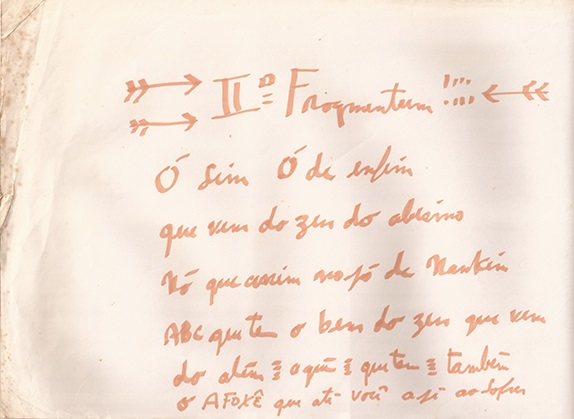 IIº Fragmentum !!...
Ó Sim Ó de enfim
que vem do zen do abesino
Nó que assim no pó de Nankin
ABC que tem o bem do zen que vem
do além o quê que tem também
O AFOXÊ que até você